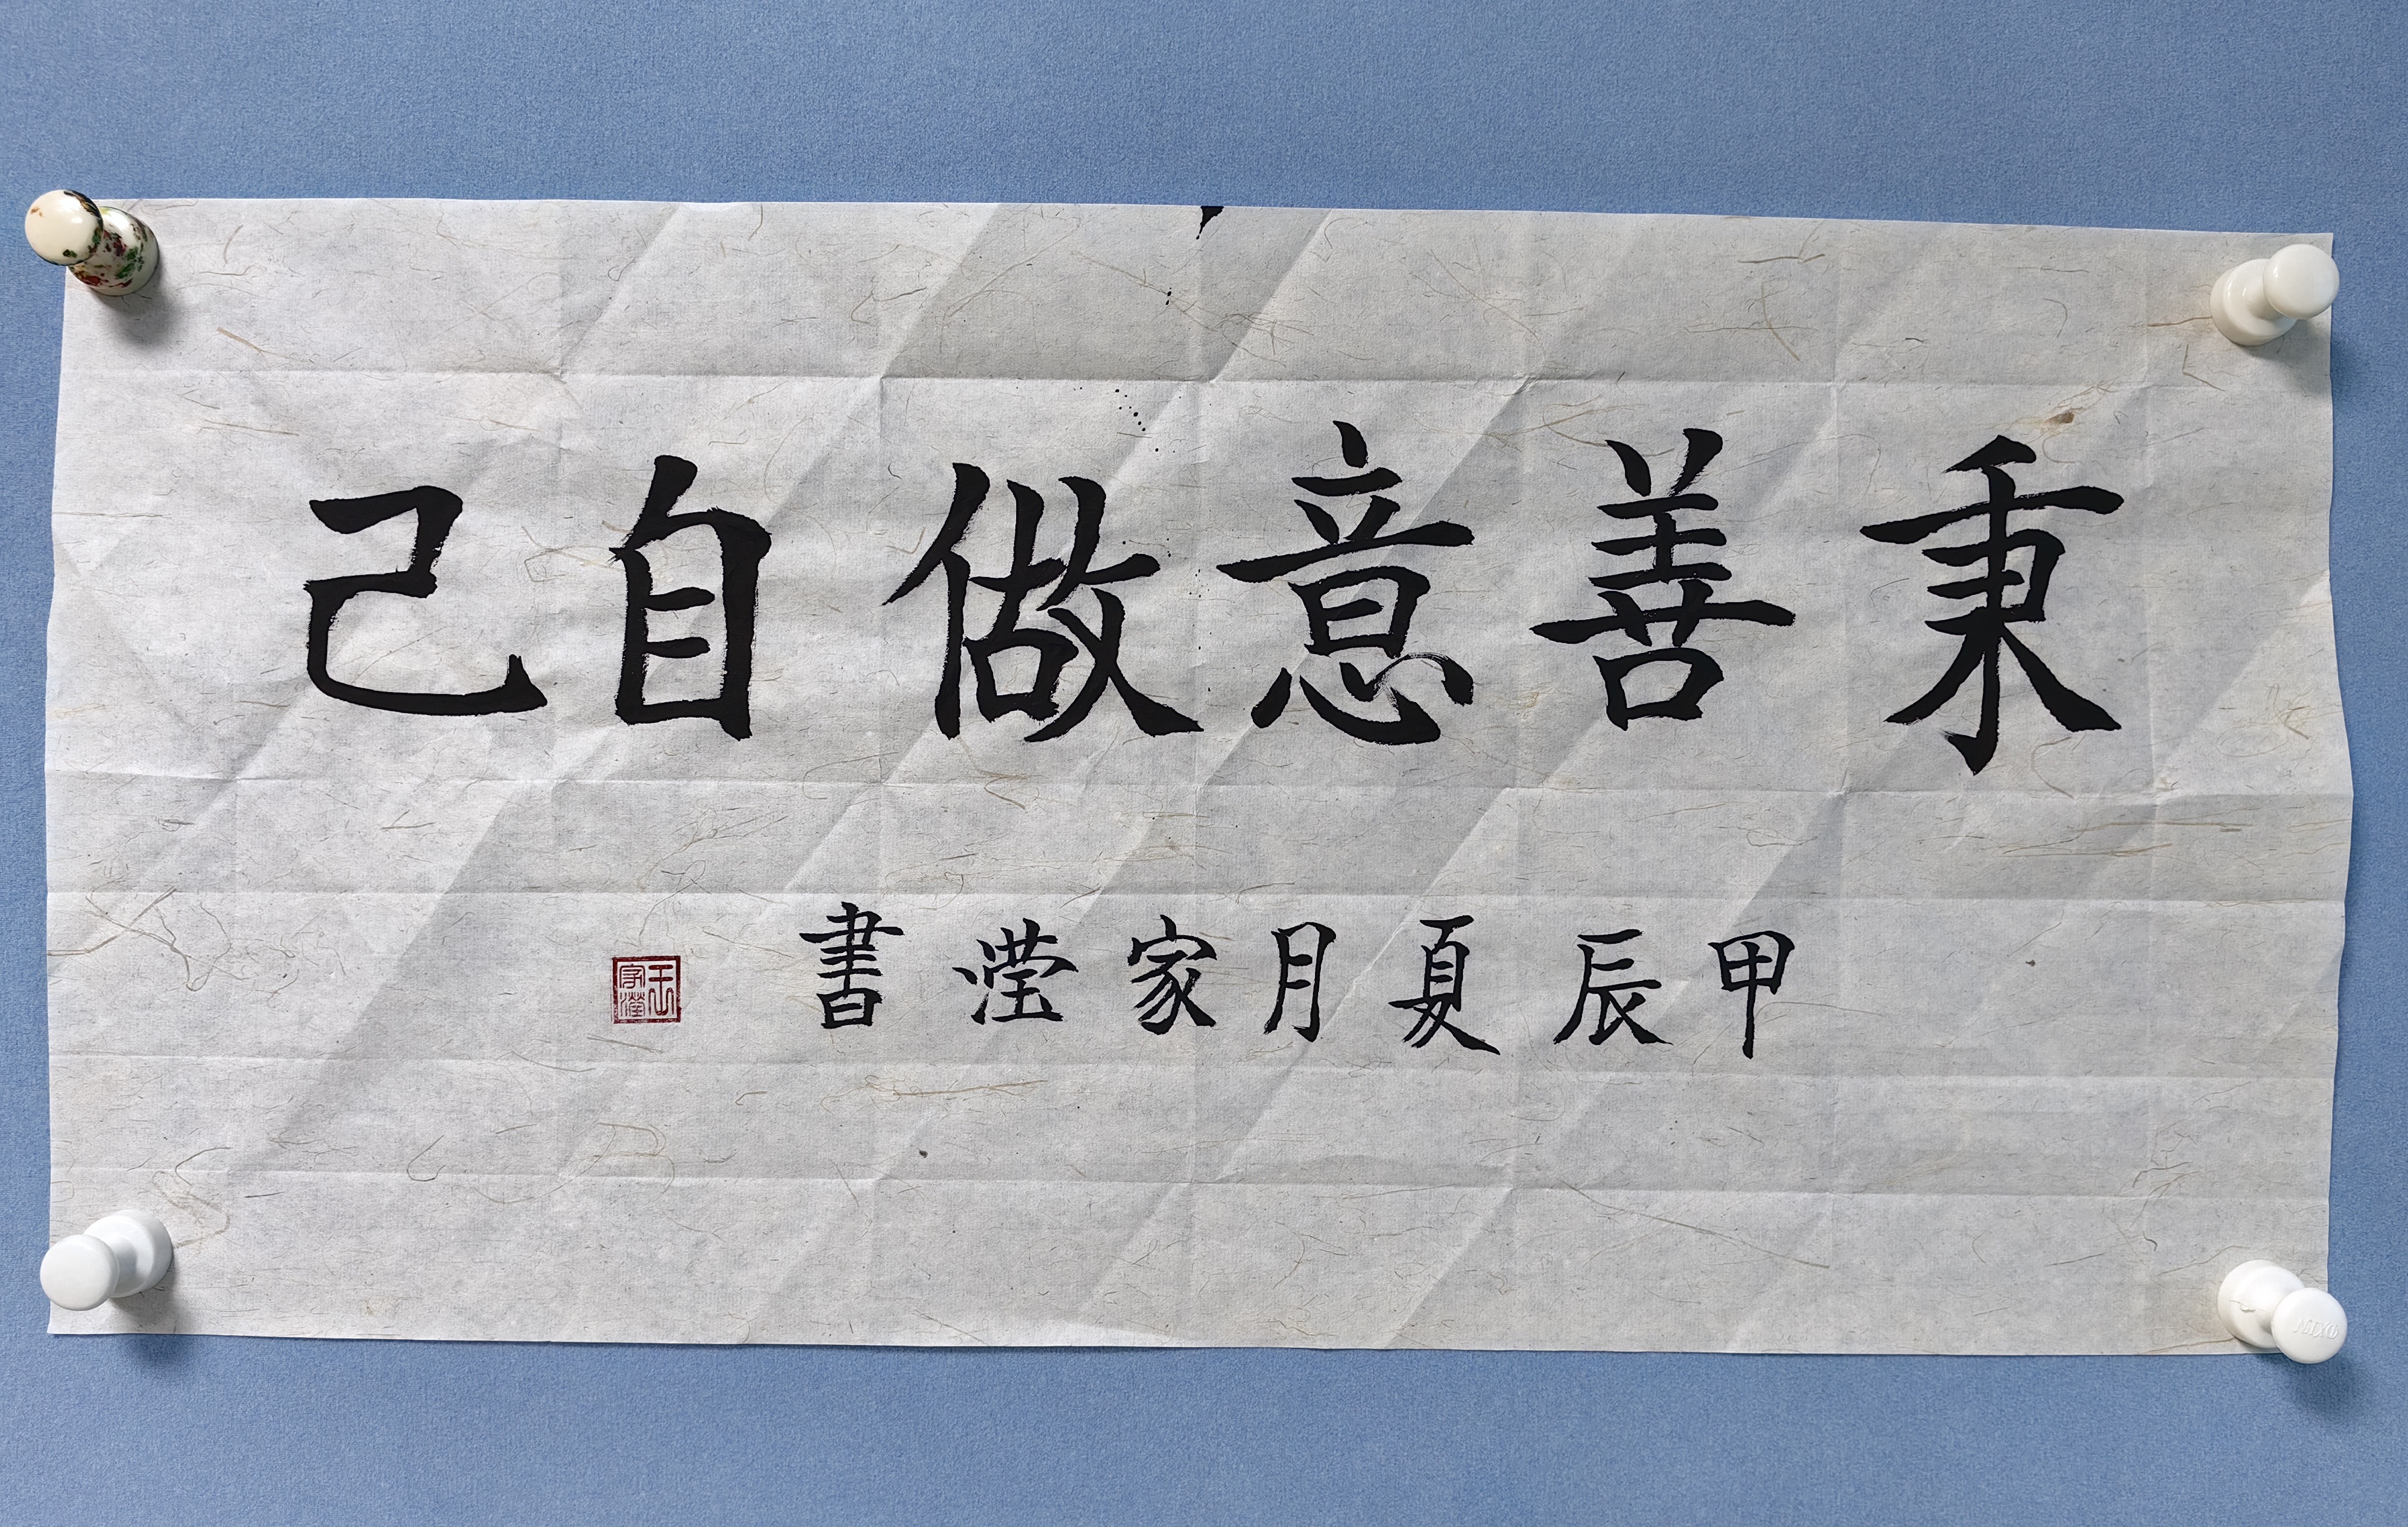 秉善意做自己
甲辰夏月家滢書
王家瀅